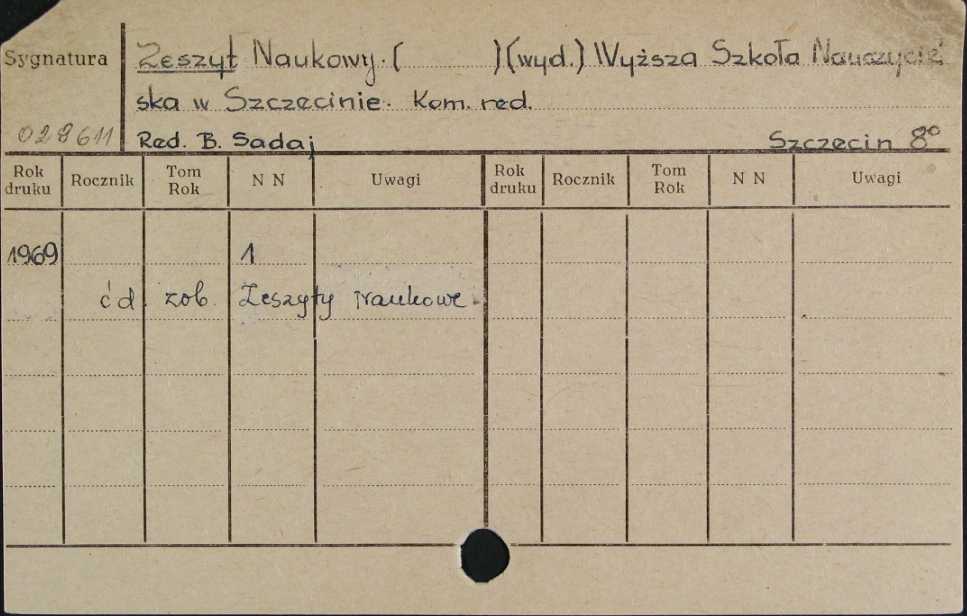 Sygnatura Zeszyt Naukowy. ( )(wyd.) Wyższa Szkoła Nauczyciel
ska w Szczecinie. Kom. red.
028611 Red. B. Sadaj Szczecin 8°
Rok druku Rocznik Tom Rok N N Uwagi Rok druku Rocznik Tom Rok N N Uwagi
1969 1
ćd. zob. Zeszyty Naukowe